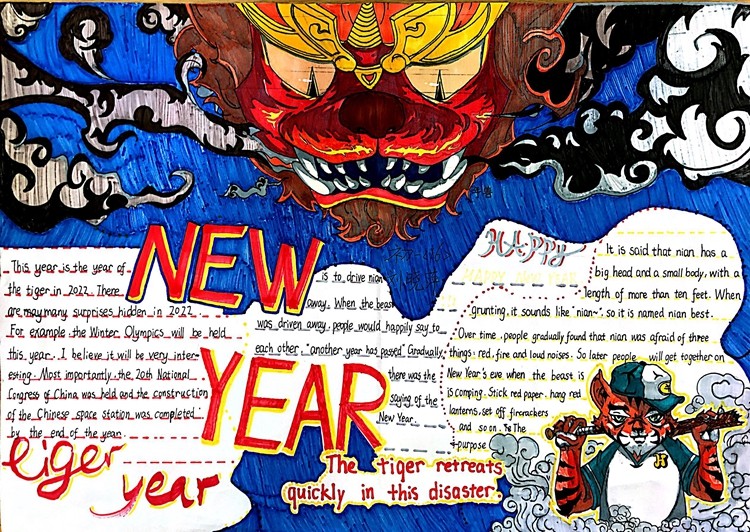 This year is the year of
the tiger in 2022. There
are may many surprises hidden in 2022.
For example the Winter Olympics will be held
this year. I believe it will be very inter-
esting. Most importantly. the 20th National
Congress of China was held and the construction
of the Chinese space station was completed
by the end of the year.
tiger
year
NEW
YEAR
HAppy
HAPPY NEW YEAR
It is said that nian has a
big head and a small body, with a
length of more than ten feet. When
grunting, it sounds like "nian~", so it is named nian best.
Over time, people gradually found that nian was afraid of three
things: red, fire and loud noises. So later people will get together on
New Year's eve when the beast is
is comping. Stick red paper. hang red
lanterns, set off firecrackers
and so on. The
purpose
is to drive nian
away. When the beast
was driven away. people would happily say to
each other. "another year has pased" Gradually
there was the
saying of the
New Year.
The tiger retreats
quickly in this disaster.
H